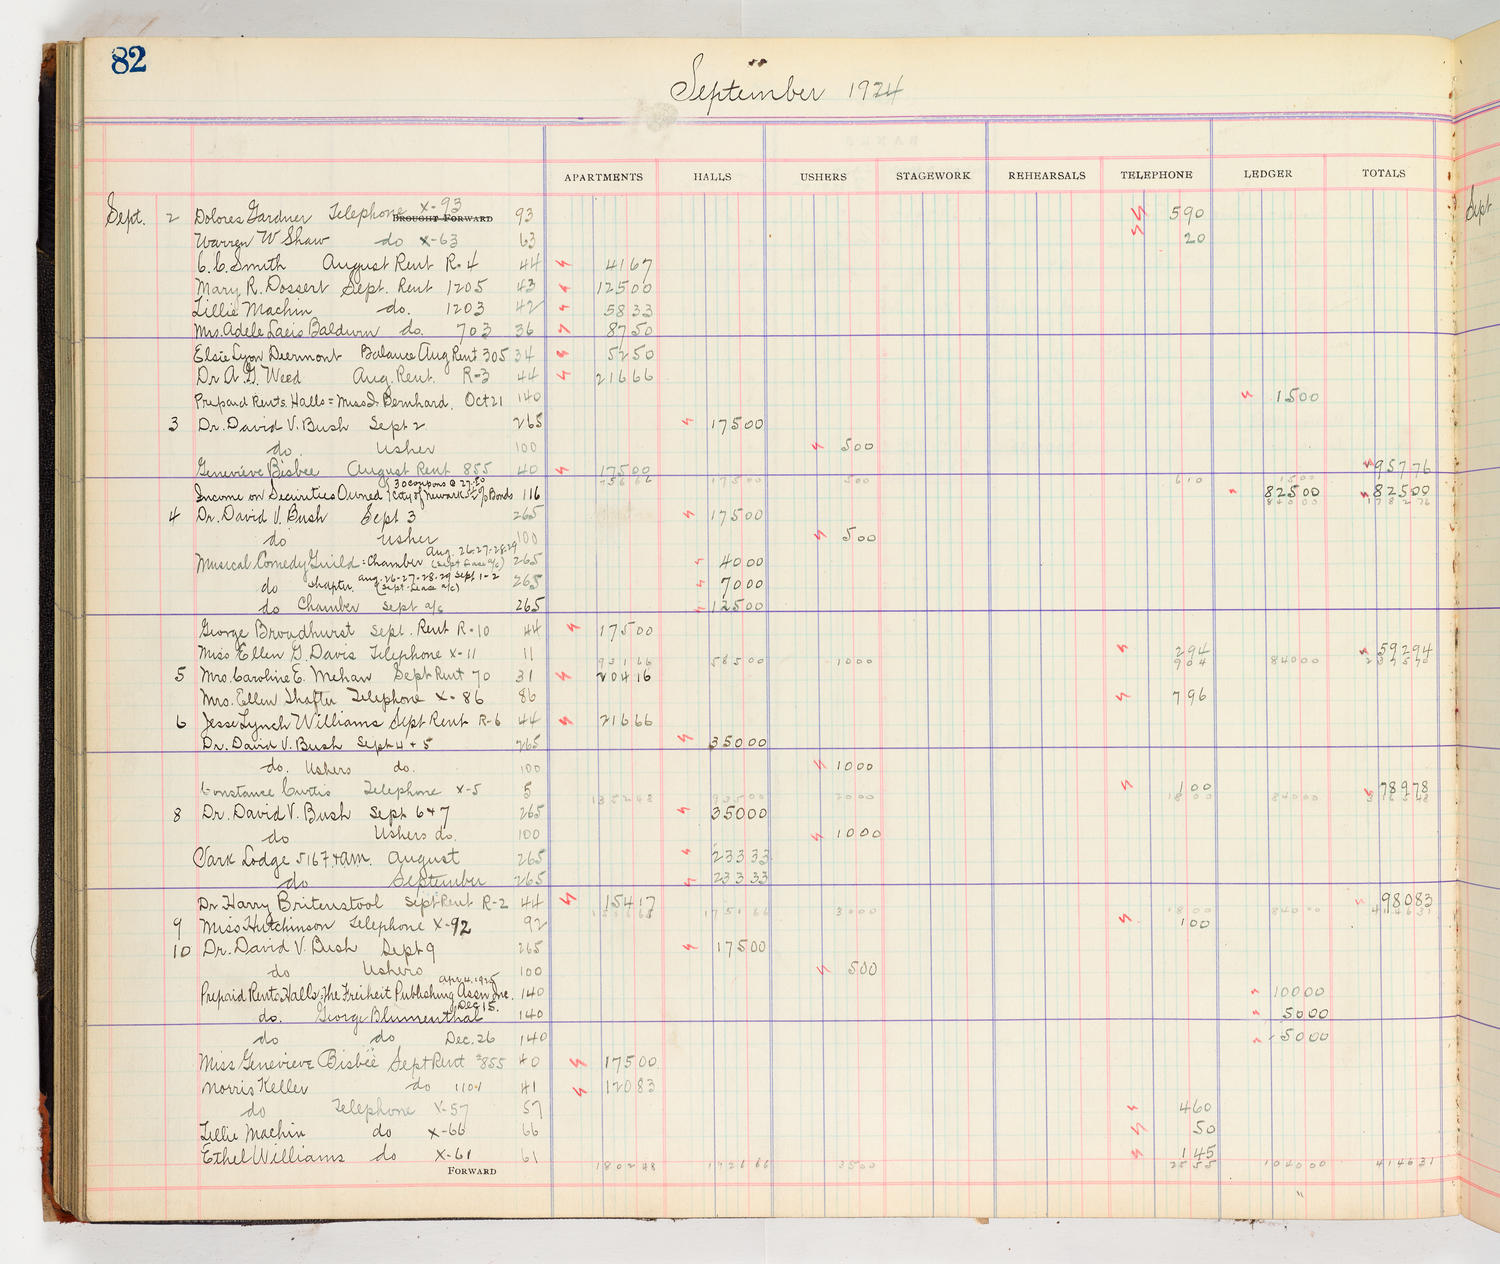 82
September 1924
APARTMENTS HALLS USHERS STAGEWORK REHEARSALS TELEPHONE LEDGER TOTALS
Sept. 2 Dolores Gardner Telephone X-93 BROUGHT FORWARD 93 590
Warren W Shaw do X-63 63 20
C. C. Smith August Rent R. 4 44 4167
Mary R. Dossert Sept. Rent 1205 43 12500
Lillie Machin do. 1203 42 5833
Mrs. Adele Laeis Baldwin do. 703 36 8750
Elsie Lyon Deermont Balance Aug Rent 305 34 5250
Dr A. G. Weed Aug. Rent. R-3 44 21666
Prepaid Rents. Halls = Miss D. Bernhard. Oct 21 140 1500
3 Dr. David V. Bush Sept 2 265 17500
do. Usher 100 500
Genevieve Bisbee August Rent 855 40 17500 95776
75666 17500 500 610 1500
Income on Securities Owned 30 coupons @ 27.50 City of Newark 5½% Bonds 116 82500 82500
84000 178276
4 Dr. David V. Bush Sept 3 265 17500
do Usher 100 500
Musical Comedy Guild: Chamber Aug. 26-27-28-29 (Sept Lease a/c) 265 4000
do Chapter. Aug. 26-27-28-29 Sept 1-2 (Sept. Lease a/c) 265 7000
do Chamber Sept a/c 265 12500
George Broadhurst Sept. Rent R-10 44 17500
Miss Ellen G. Davis Telephone X-11 11 294 59294
93166 58500 1000 904 84000 237570
5 Mrs. Caroline E. Mehan Sept Rent 70 31 20416
Mrs. Ellen Shafter Telephone X-86 86 796
6 Jesse Lynch Williams Sept Rent R-6 44 21666
Dr. David V. Bush Sept 4 + 5 265 35000
do. Ushers do. 100 1000
Constance Curtis Telephone X-5 5 100 78978
135248 93500 2000 1800 84000 316548
8 Dr. David V. Bush Sept 6 + 7 265 35000
do Ushers do. 100 1000
Park Lodge 516 F. + A.M. August 265 23333
do September 265 23333
Dr Harry Britenstool Sept Rent R-2 44 15417 98083
150665 175166 3000 1800 84000 414631
9 Miss Hutchinson Telephone X-92 92 100
10 Dr. David V. Bush Sept 9 265 17500
do Ushers 100 500
Prepaid Rents. Halls: The Freiheit Publishing Assn Inc. Apr. 4. 1925 140 10000
do. George Blumenthal Dec 15. 140 5000
do do Dec. 26 140 5000
Miss Genevieve Bisbee Sept Rent #855 40 17500
Norris Keller do 1104 41 12083
do Telephone X-57 57 460
Lillie Machin do X-66 66 50
Ethel Williams do X-61 61 145
FORWARD 180248 192666 3500 2555 104000 414631
Sept